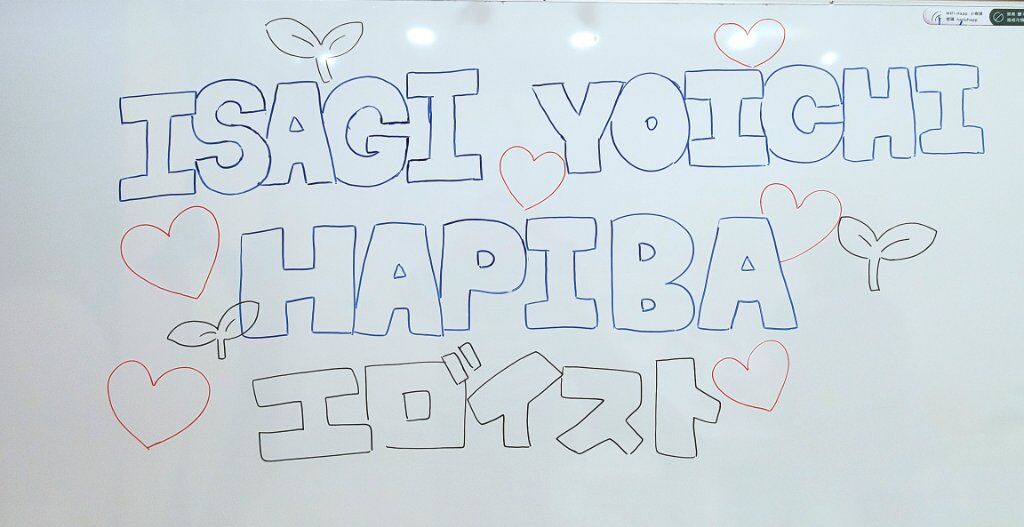 ISAGI YOICHI
HAPIBA
エゴイスト